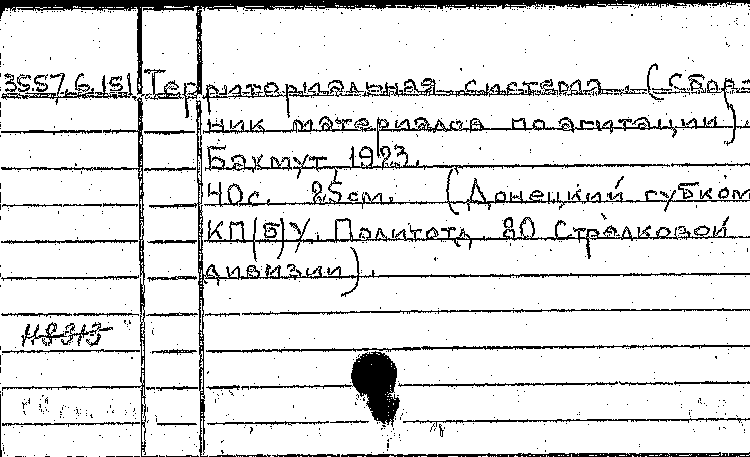 3557.6.151 Территориальная система. (Сбор-
ник материалов по агитации).
Бахмут, 1923.
40с. 25см. (Донецкий губком
КП(б)У. Политотд. 80 Стрелковой
дивизии).